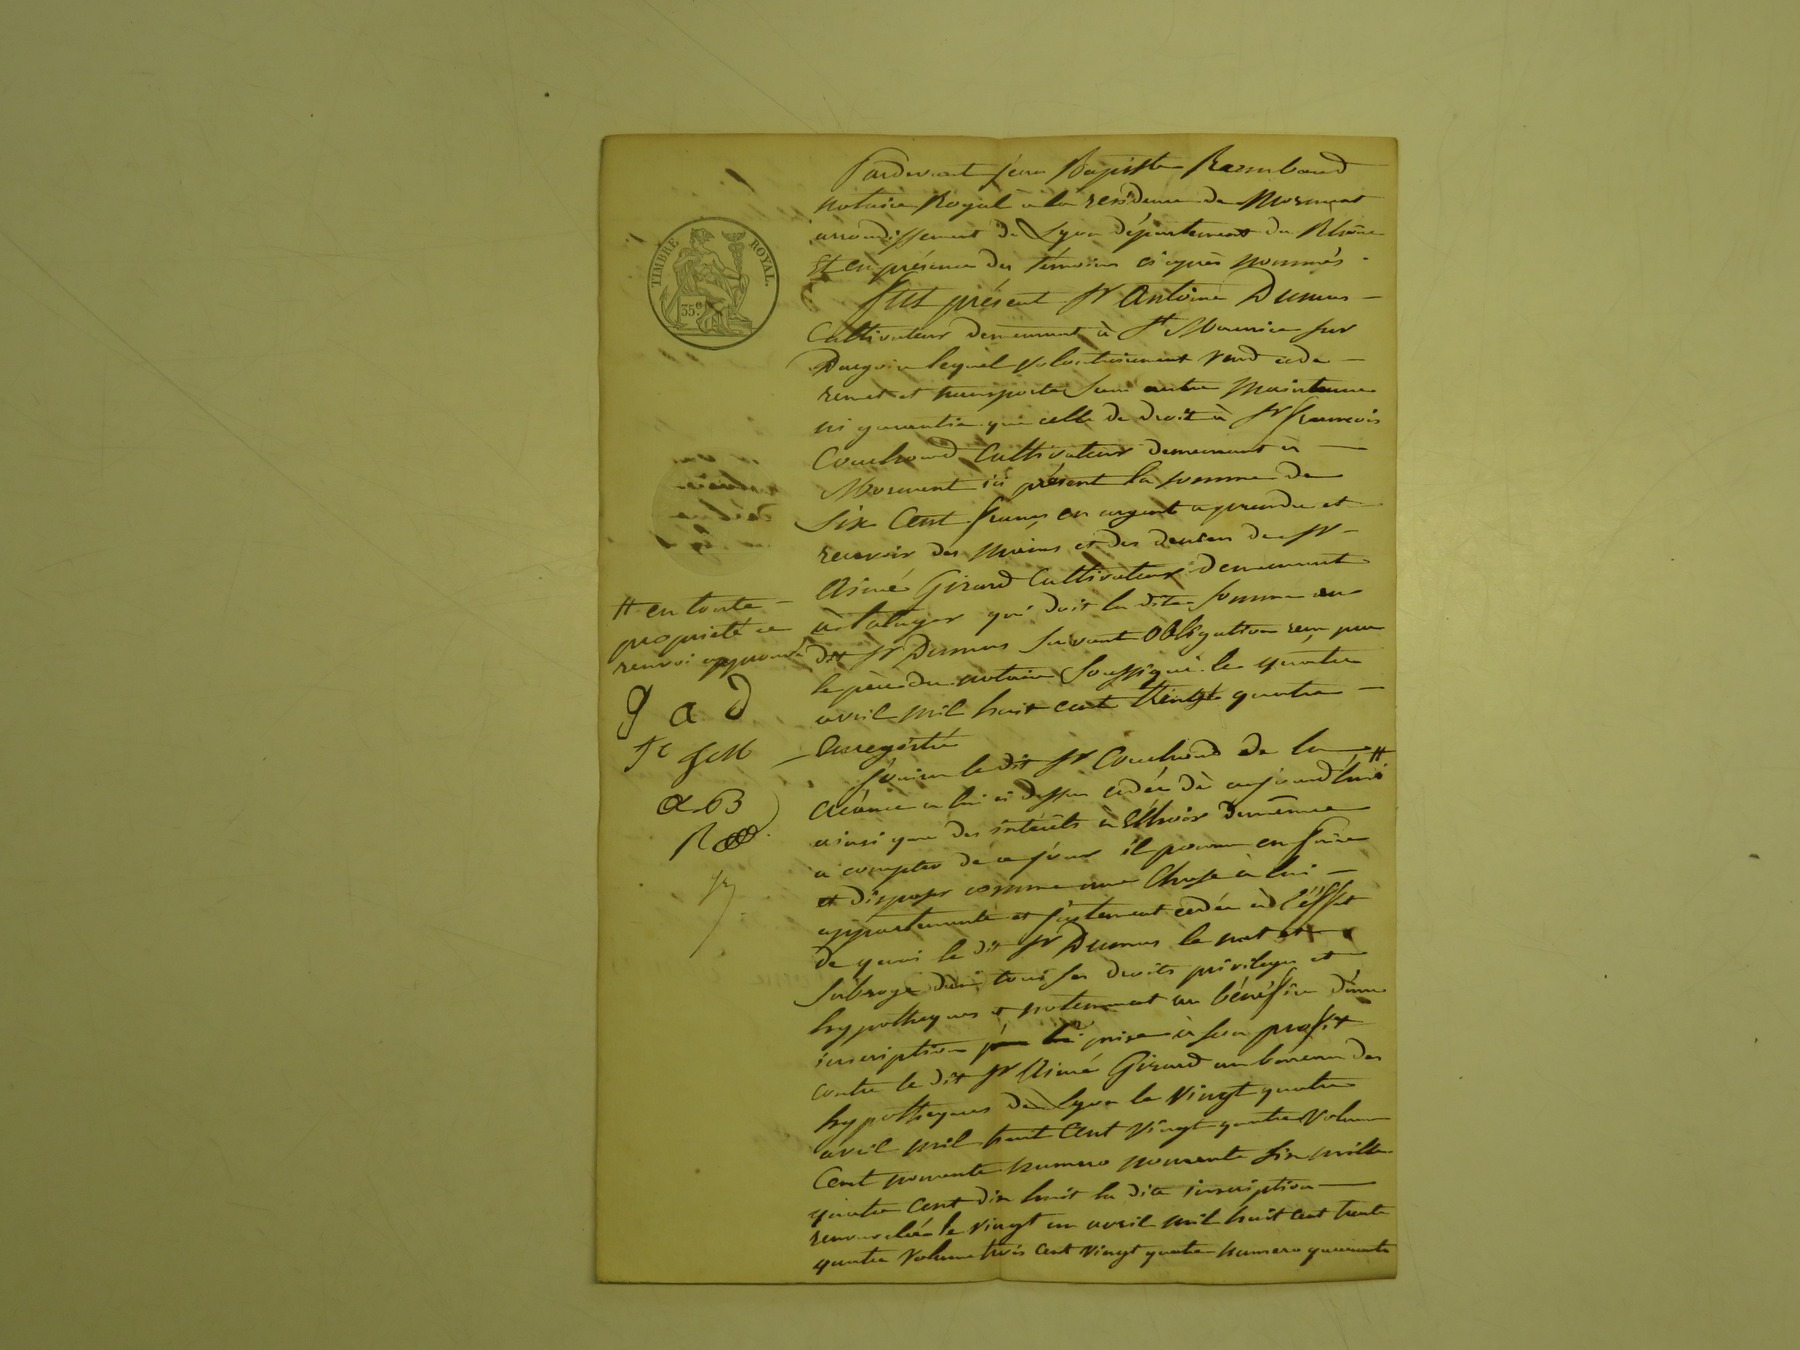 TIMBRE ROYAL
35c.
Pardevant Jean Baptiste Raimbaud
notaire Royal à la résidence de Mornant
arrondissement de Lyon département du Rhône
Et en présence des témoins ci après nommés.
Fut présent Sr Antoine Dumas
Cultivateur demeurant à St Maurice sur
Dargoire lequel volontairement vend cède
remet et transporte sans autre maintenue
ni garantie que celle de droit à Sr François
Couchoud Cultivateur demeurant à
Mornant ici présent la somme de
Six Cent francs en argent a prendre et
recevoir des mains et des deniers de Sr
Aimé Girard Cultivateur demeurant
à qui doit la dite somme au
dit Sr Dumas suivant Obligation reçu par
le père du notaire Soussigné le quatre
avril mil huit cent vingt quatre
Enregistré
Jouira le dit Sr Couchoud de la
créance a lui ci dessus cédée dè aujourd'hui #
ainsi que des intérêts à Echoir d'emême
a compter de ce jour il pourra en faire
et disposer comme une Chose à lui
appartenante et justement cédée ad l'éffet
de quoi le dit Sr Dumas le met et
subroge dans tous ses droits privileges et
hypotheques et notemment au bénéfice d'une
inscription prise à son profit
contre le dit Sr Aimé Girard au bureau des
hypotheques de Lyon le vingt quatre
avril mil huit Cent vingt quatre Volume
Cent nonante numero nonante six mille
quatre Cent dix huit la dite inscription
renouvelée le vingt un avril mil huit cent trente
quatre Volume trois cent vingt quatre numero quarante
# en toute
propriété ce
renvoi approuvé
g a d
fc
a B